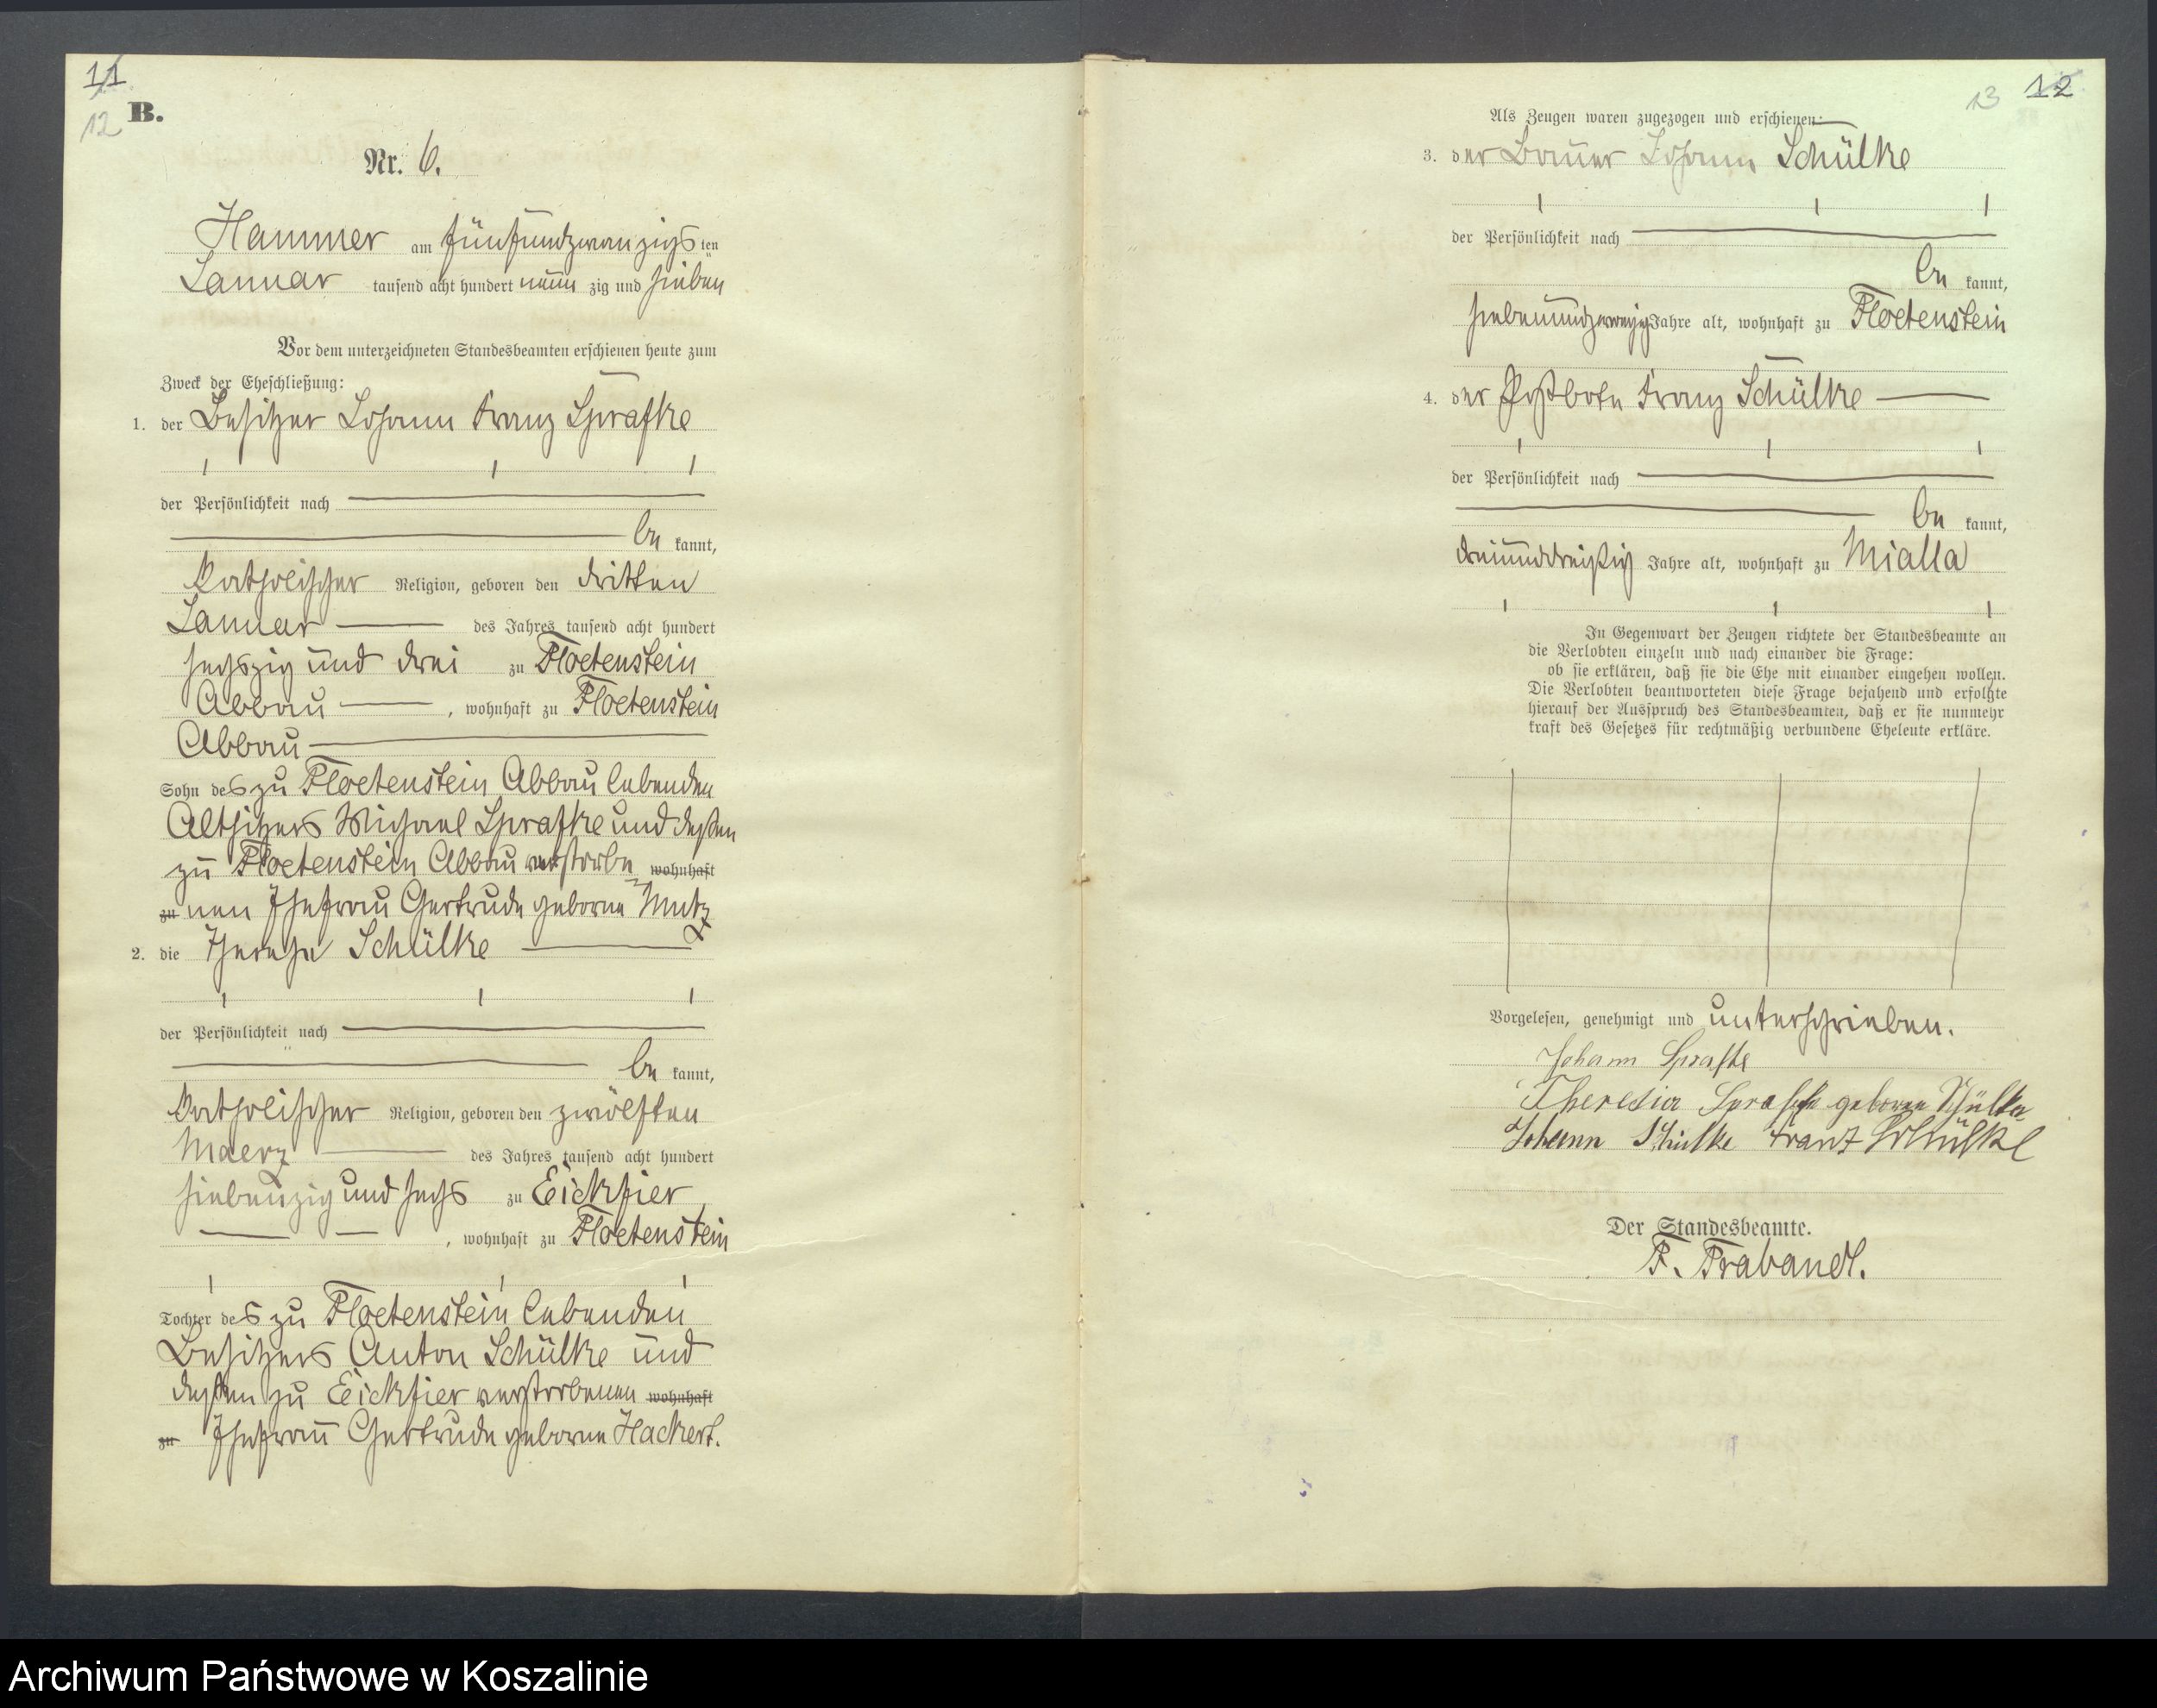 11
12
B.
Nr. 6.
Hammer am fünfundzwanzigsten
Januar tausend acht hundert neun zig und sieben
Vor dem unterzeichneten Standesbeamten erschienen heute zum
Zweck der Eheschließung:
1. der Besitzer Johann Franz Sprafke
der Persönlichkeit nach
be kannt,
katholischer Religion, geboren den dritten
Januar des Jahres tausend acht hundert
sechszig und drei zu Floetenstein
Abbau, wohnhaft zu Floetenstein
Abbau
Sohn des zu Floetenstein Abbau lebenden
Altsitzers Michael Sprafke und dessen
zu Floetenstein Abbau verstorbe wohnhaft
zu nen Ehefrau Gertrude geborne Mutz
2. die Therese Schülke
der Persönlichkeit nach
be kannt,
katholischer Religion, geboren den zwölften
Maerz des Jahres tausend acht hundert
siebenzig und sechs zu Eickfier
, wohnhaft zu Floetenstein
Tochter des zu Floetenstein lebenden
Besitzers Anton Schülke und
dessen zu Eickfier verstorbenen wohnhaft
zu Ehefrau Gertrude geborne Hackert.
13 12
Als Zeugen waren zugezogen und erschienen:
3. der Bauer Johann Schülke
der Persönlichkeit nach
be kannt,
siebenundzwanzig Jahre alt, wohnhaft zu Floetenstein
4. der Postbote Franz Schülke
der Persönlichkeit nach
be kannt,
dreiunddreißig Jahre alt, wohnhaft zu Mialla
In Gegenwart der Zeugen richtete der Standesbeamte an
die Verlobten einzeln und nach einander die Frage:
ob sie erklären, daß sie die Ehe mit einander eingehen wollen.
Die Verlobten beantworteten diese Frage bejahend und erfolgte
hierauf der Ausspruch des Standesbeamten, daß er sie nunmehr
kraft des Gesetzes für rechtmäßig verbundene Eheleute erkläre.
Vorgelesen, genehmigt und unterschrieben.
Johann Sprafke
Theresia Sprafke geborne Schülke
Johann Schülke Franz Schülke
Der Standesbeamte.
F. Prabandt.
Archiwum Państwowe w Koszalinie